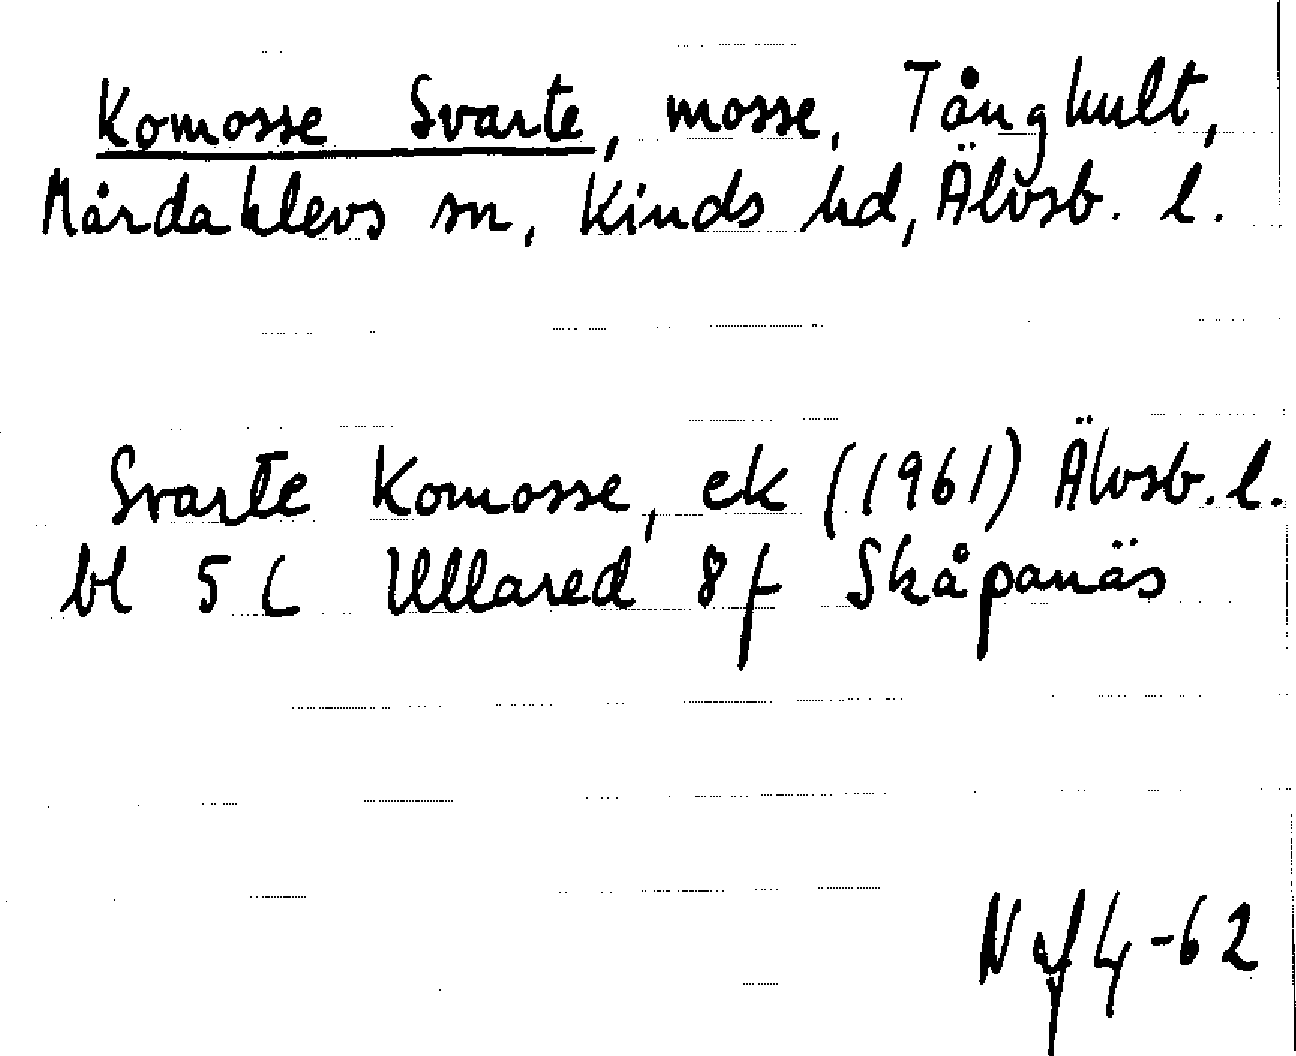 Komosse Svarte, mosse, Tångkult,
Mårdaklevs sn, Kinds hd, Älvsb. l.
Svarte Komosse, ek (1961) Älvsb. l.
bl 5 C Ullared 8 f Skåpanäs